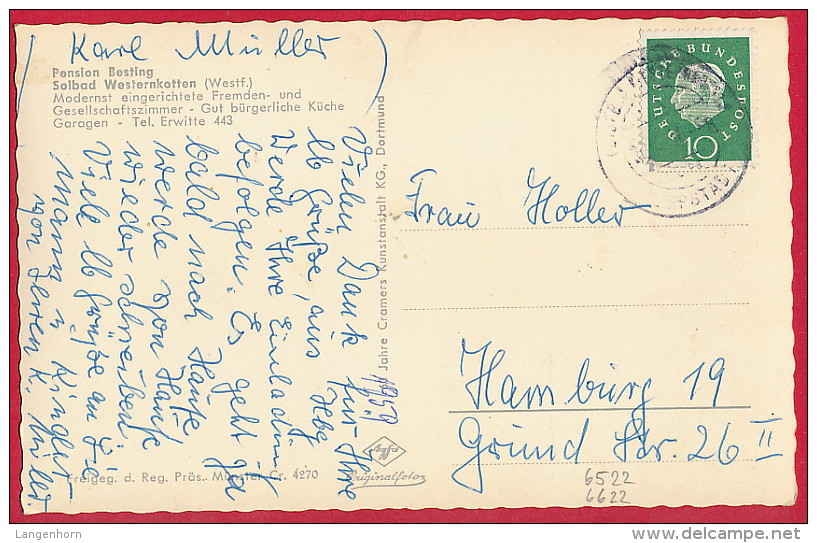 Karl Müller
Pension Besting
Solbad Westernkotten (Westf.)
Modernst eingerichtete Fremden- und
Gesellschaftszimmer - Gut bürgerliche Küche
Garagen - Tel. Erwitte 443
Vielen Dank für Ihre
lb Grüße, aus Hbg
Werde Ihre Einladung
befolgen. Es geht ja
bald nach Hause
werde von Hause
wieder schreiben.
Viele lb Grüße an Sie
Mann u Kinder
von Ihren K. Müller
1959
Jahre Cramers Kunstanstalt KG., Dortmund
Agfa
Originalfoto
Freigeg. d. Reg. Präs. Münster Cr. 4270
DEUTSCHE BUNDESPOST
10
Frau Holler
Hamburg 19
Gründ Str. 26 II
6522
6622
Langenhorn
© delcampe.net